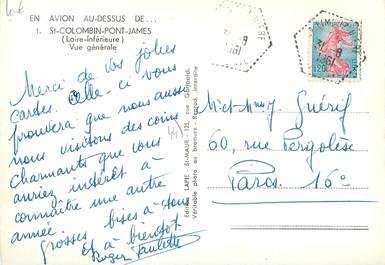 EN AVION AU-DESSUS DE...
1. St-COLOMBIN-PONT-JAMES
(Loire-Inférieure)
Vue générale
Merci de vos jolies
cartes. Celle-ci vous
prouvera que nous aussi
nous visitons des coins
charmants que vous
auriez intérêt à
connaître une autre
année.
grosses bises à tous
et à bientôt.
Roger Paulette
Editions LAPIE - St-MAUR - 125, rue Garibaldi
Véritable photo au bromure - Reprod. interdite
Mr et Mme J Guéry
60, rue Pergolèse
Paris 16e
0,20